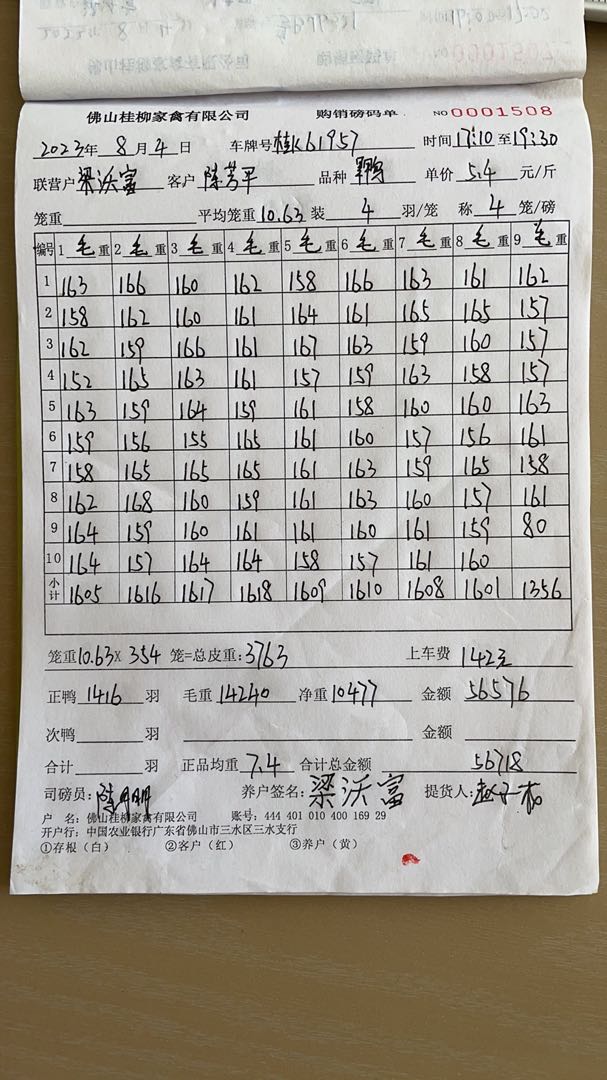 佛山桂柳家禽有限公司 购销磅码单 NO 0001508
2023年 8 月 4 日 车牌号 桂K61957 时间 17:10 至 19:30
联营户 梁沃富 客户 陈芳平 品种 鸭 单价 5.4 元/斤
笼重 平均笼重 10.63 装 4 羽/笼 称 4 笼/磅
编号 1 毛重 2 毛重 3 毛重 4 毛重 5 毛重 6 毛重 7 毛重 8 毛重 9 毛重
1 163 166 160 162 158 166 163 161 162
2 158 162 160 161 164 161 165 165 157
3 162 159 166 161 167 163 159 160 157
4 152 165 163 161 157 159 163 158 157
5 163 159 164 159 161 158 160 160 163
6 159 156 155 165 161 160 157 156 161
7 158 165 165 165 161 163 159 165 158
8 162 168 160 159 161 163 160 157 161
9 164 159 160 161 161 160 161 159 80
10 164 157 164 164 158 157 161 160
小计 1605 1616 1617 1618 1609 1610 1608 1601 1356
笼重 10.63 X 354 笼=总皮重: 3763 上车费 142元
正鸭 1416 羽 毛重 14240 净重 10477 金额 56576
次鸭 羽 金额
合计 羽 正品均重 7.4 合计总金额 56718
司磅员: 养户签名: 梁沃富 提货人:
户 名: 佛山桂柳家禽有限公司 账号: 444 401 010 400 169 29
开户行: 中国农业银行广东省佛山市三水区三水支行
①存根(白) ②客户(红) ③养户(黄)